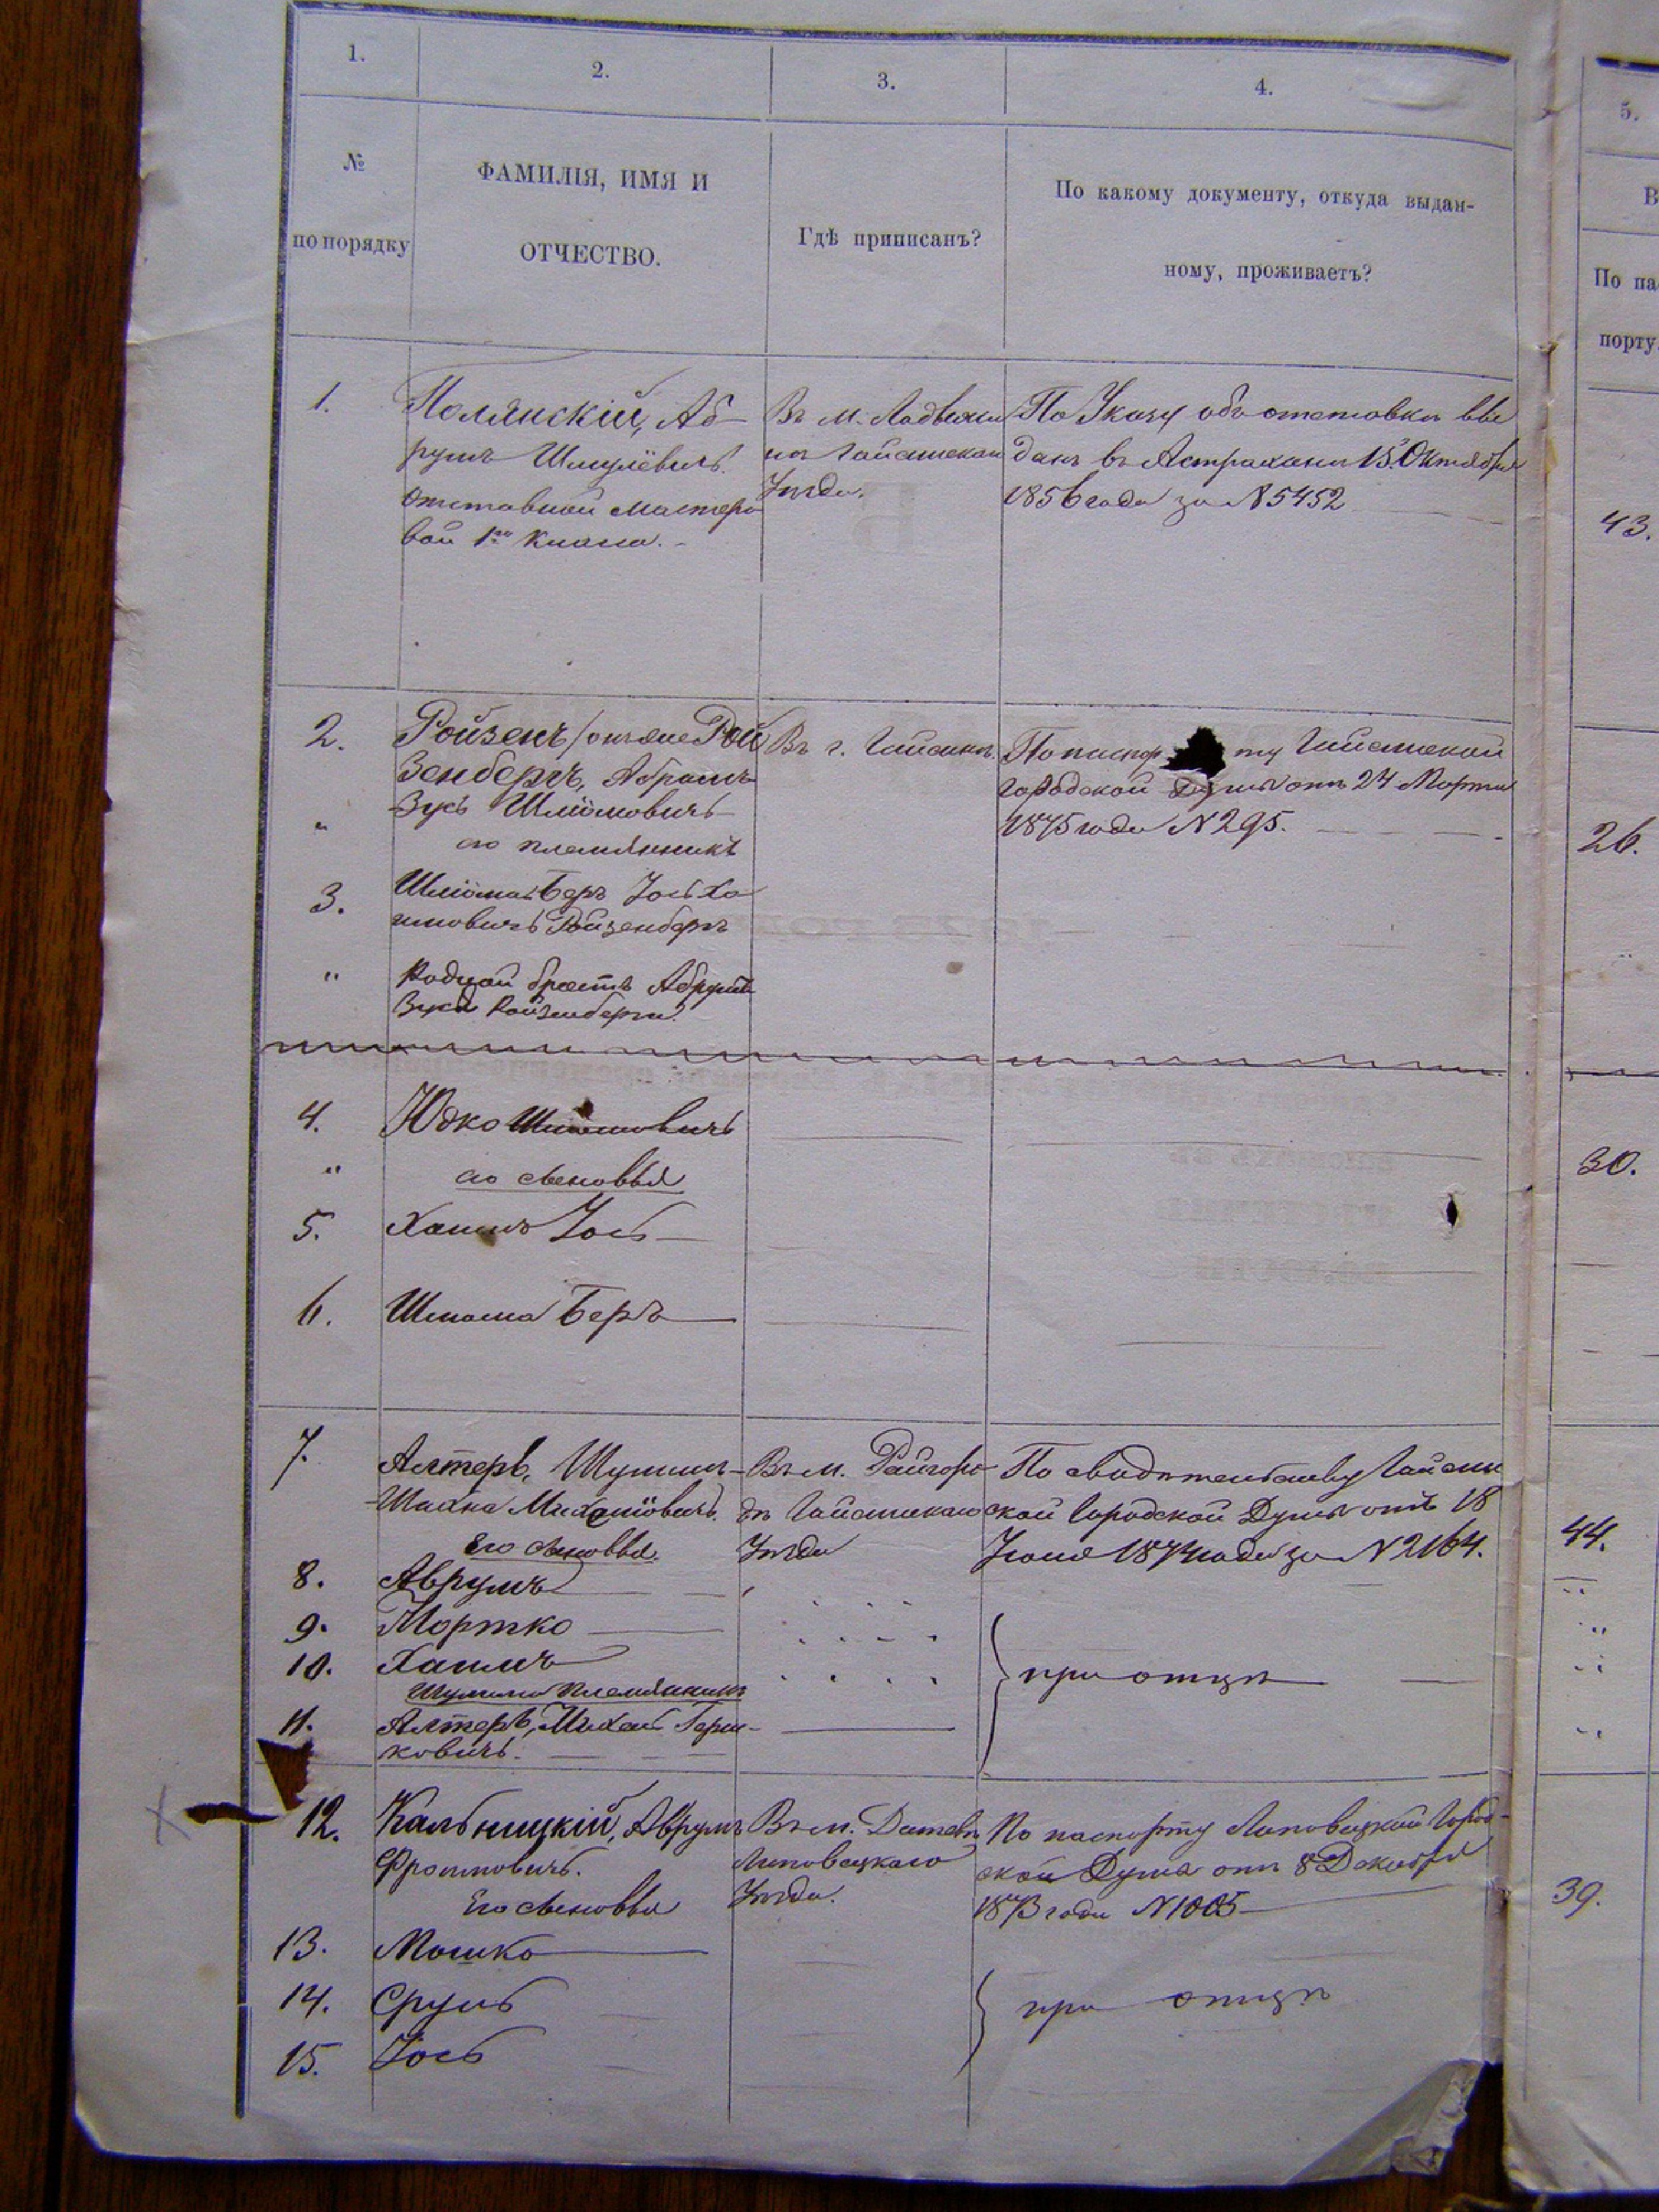 1.
2.
3.
4.
5.
№
по порядку
ФАМИЛІЯ, ИМЯ И
ОТЧЕСТВО.
Гдѣ приписанъ?
По какому документу, откуда выдан-
ному, проживаетъ?
В
По па
порту
1.
Полянскій, Аб-
румъ Шмулёвичъ.
отставной мастеро
вой 1го класса.
Въ м. Ладыжи
нѣ Гайсинскаго
Уѣзда.
По Указу объ отставкѣ вы
данъ въ Астрахани 15 Октября
1856 года за №5452
43.
2.
Ройзенъ /онъ же Рой
зенбергъ, Абрамъ
Зусь Шліомовичъ
"
его племянникъ
Въ г. Гайсинѣ.
По паспор ту Гайсинской
Городской Думы отъ 24 Марта
1875 года №295.
26.
3.
Шліома Беръ Іось Ха
имовичъ Ройзенбергъ
"
Родной братъ Абрума
Зуся Ройзенберга.
4.
Юдко Шліомовичъ
30.
"
его сыновья
5.
Хаимъ Іось
6.
Шлиома Беръ
7.
Алтеръ, Шулимъ-
Шаяна Михелiовичъ.
Въ м. Райгоро-
дѣ Гайсинскаго
Уѣзда
По свидѣтельству Гайсин
ской Городской Думы отъ 18
Іюня 1874 года за №2164.
44.
Его сыновья.
8.
Аврумъ
9.
Мортко
10.
Хаимъ
при отцѣ
Шулима племянникъ
11.
Алтеръ, Михель Герш-
ковичъ.
12.
Кальницкій, Аврумъ
Фроимовичъ.
Въ м. Дашевѣ
Липовецкаго
Уѣзда.
По паспорту Липовецкой Город-
ской Думы отъ 8 Декабря
1873 года №1005
39.
Его сыновья
13.
Мошко
14.
Сруль
при отцѣ
15.
Іось